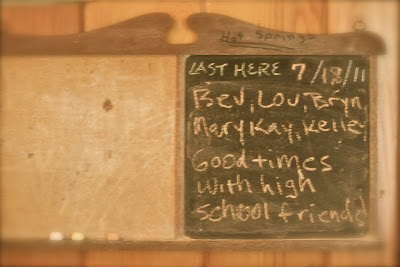 Hot Springs
LAST HERE 7/18/11
Bev, Lou, Bryn,
Mary Kay, Kelley
Good times
with high
school friends